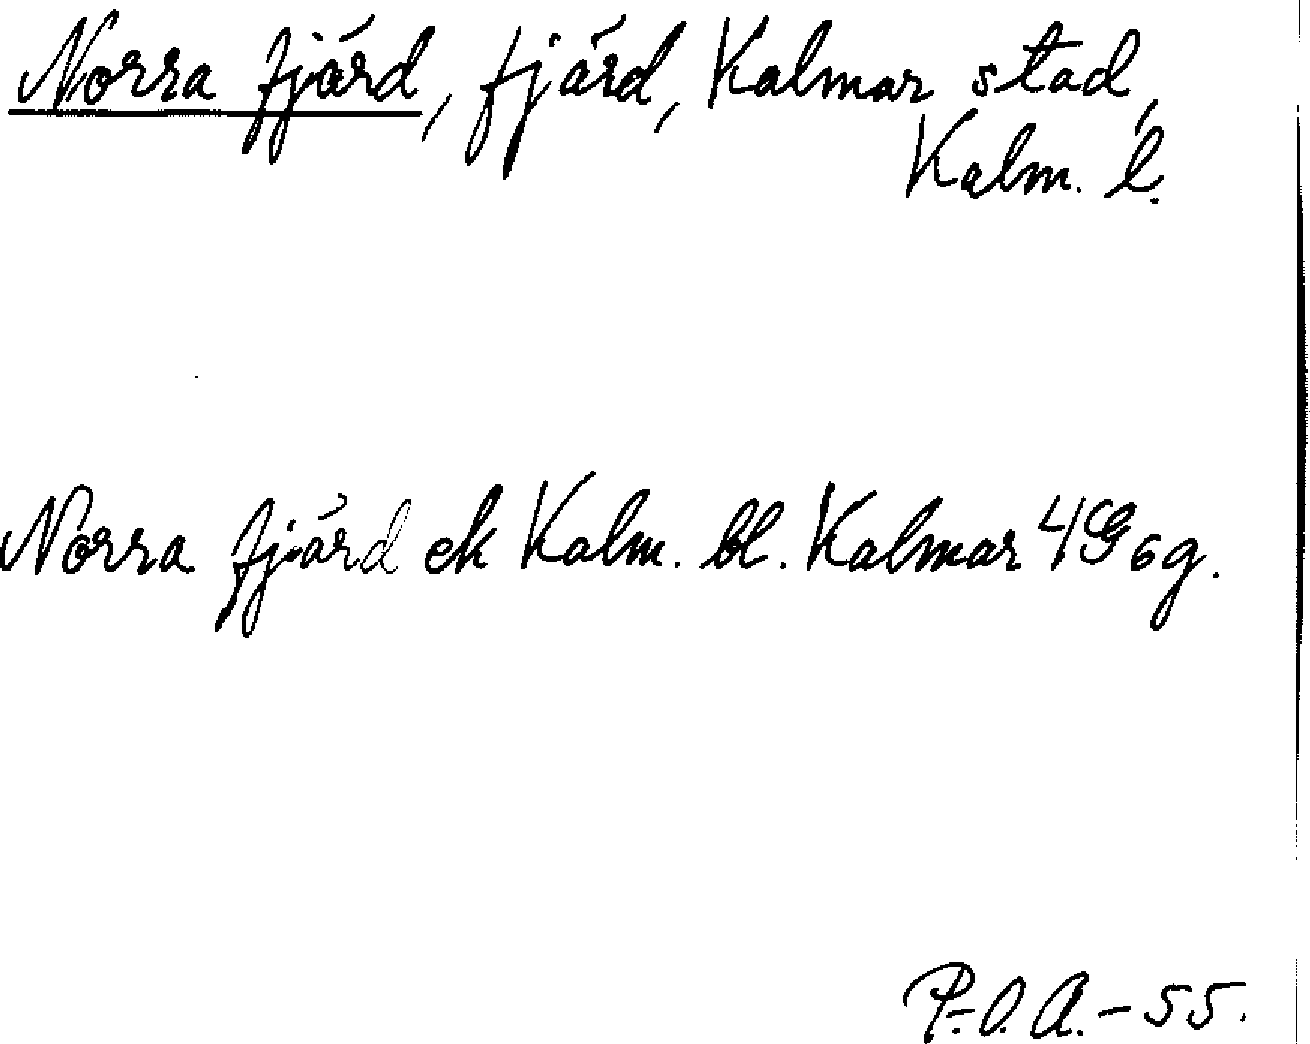 Norra fjärd, fjärd, Kalmar stad,
Kalm. l.
Norra fjärd ek Kalm. bl. Kalmar 4G6g.
P.-O. A. - 55.